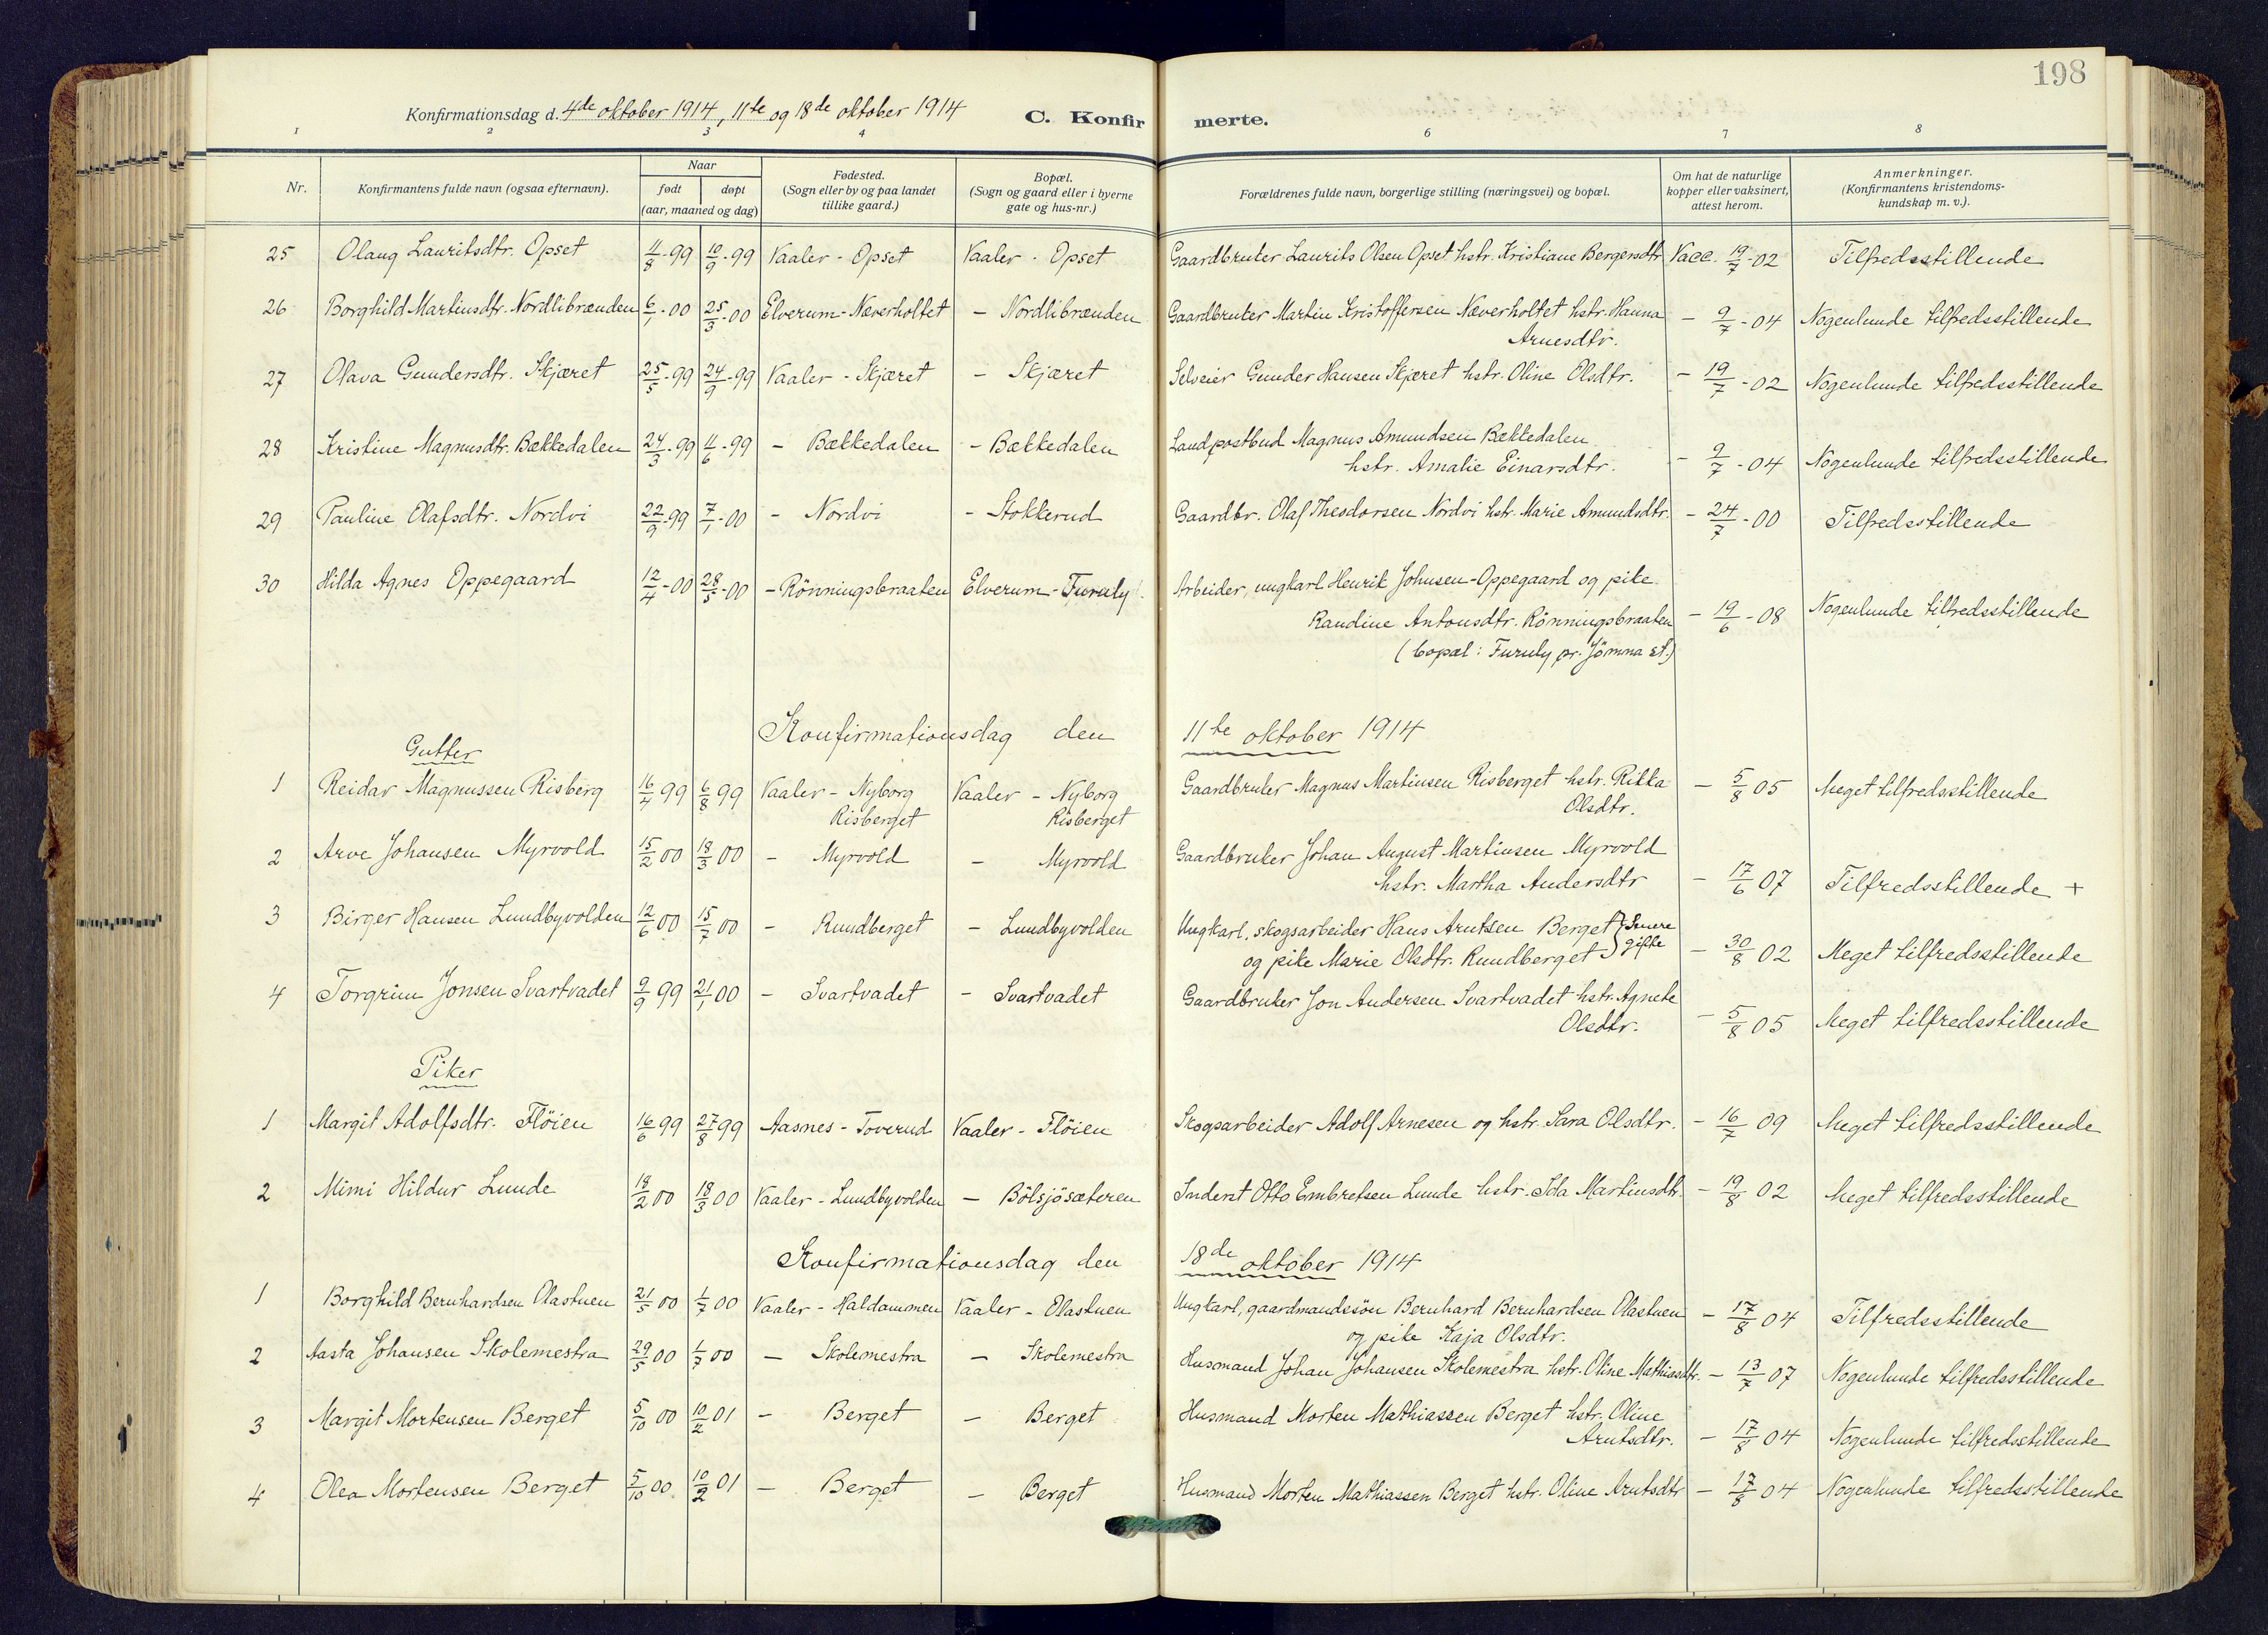 198
Konfirmationsdag d. 4de oktober 1914, 11te og 18de oktober 1914 C. Konfir merte.
1 2 3 4 6 7 8
Nr. Konfirmantens fulde navn (ogsaa efternavn). Naar født døpt (aar, maaned og dag) Fødested. (Sogn eller by og paa landet tillike gaard.) Bopæl. (Sogn og gaard eller i byerne gate og hus-nr.) Forældrenes fulde navn, borgerlige stilling (næringsvei) og bopæl. Om hat de naturlige kopper eller vaksinert, attest herom. Anmerkninger. (Konfirmantens kristendoms-kundskap m. v.).
25 Olaug Lauritsdtr. Opset 4/8-99 10/9-99 Vaaler - Opset Vaaler - Opset Gaardbruker Laurits Olsen Opset hstr. Kristiane Bergersdtr Vacc. 19/7-02 Tilfredsstillende
26 Borghild Martinsdtr. Nordlibrænden 6/1-00 25/3-00 Elverum - Næverholtet - Nordlibrænden Gaardbruker Martin Kristoffersen Næverholtet hstr. Hanna - 9/7-04 Nogenlunde tilfredsstillende
Arnesdtr.
27 Olava Gundersdtr. Skjæret 25/5-99 24/9-99 Vaaler - Skjæret - Skjæret Selveier Gunder Hansen Skjæret hstr. Oline Olsdtr. - 19/7-02 Nogenlunde tilfredsstillende
28 Kristine Magnusdtr. Bækkedalen 24/3-99 4/6-99 - Bækkedalen - Bækkedalen Landpostbud Magnus Amundsen Bækkedalen
hstr. Amalie Einarsdtr. - 9/7-04 Nogenlunde tilfredsstillende
29 Pauline Olafsdtr. Nordvi 22/9-99 7/1-00 - Nordvi - Stokkerud Gaardbr. Olaf Theodorsen Nordvi hstr. Marie Amundsdtr. - 24/7-00 Tilfredsstillende
30 Hilda Agnes Oppegaard 12/4-00 28/5-00 - Rönningsbraaten Elverum - Furuly Arbeider, ungkarl Henrik Johnsen-Oppegaard og pike
Randine Antonsdtr. Rönningsbraaten - 19/6-08 Nogenlunde tilfredsstillende
(bopæl: Furuly pr. Jömna st.)
Konfirmationsdag den 11te oktober 1914
Gutter
1 Reidar Magnussen Risberg 16/4 99 6/8 99 Vaaler - Nyborg Vaaler - Nyborg Gaardbruker Magnus Martinsen Risberget hstr. Rikka - 5/8 05 Meget tilfredsstillende
Risberget Risberget Olsdtr.
2 Arve Johansen Myrvold 15/2 00 18/3 00 - Myrvold - Myrvold Gaardbruker Johan August Martinsen Myrvold
hstr. Martha Andersdtr - 17/6 07 Tilfredsstillende +
3 Birger Hansen Lundbyvolden 12/6 00 15/7 00 - Rundberget - Lundbyvolden Ungkarl, skogsarbeider Hans Arntsen Berget } Senere
og pike Marie Olsdtr. Rundberget gifte - 30/8 02 Meget tilfredsstillende
4 Torgrim Jonsen Svartvadet 9/9 99 21/1 00 - Svartvadet - Svartvadet Gaardbruker Jon Andersen Svartvadet hstr. Agnete
Olsdtr. - 5/8 05 Meget tilfredsstillende
Piker
1 Margit Adolfsdtr. Flöien 16/6 99 27/8 99 Aasnes - Toverud Vaaler - Flöien Skogsarbeider Adolf Arnesen og hstr. Sara Olsdtr. - 16/7 09 Meget tilfredsstillende
2 Mimi Hildur Lunde 18/2 00 18/3 00 Vaaler - Lundbyvolden - Bölsjösæteren Inderst Otto Embretsen Lunde hstr. Ida Martinsdtr. - 19/8 02 Meget tilfredsstillende
Konfirmationsdag den 18de oktober 1914
1 Borghild Bernhardsen Olastuen 21/5 00 1/7 00 Vaaler - Haldammen Vaaler - Olastuen Ungkarl, gaardmandssön Bernhard Bernhardsen Olastuen - 17/8 04 Tilfredsstillende
og pike Kaja Olsdtr.
2 Aasta Johansen Skolemestra 29/5 00 1/7 00 - Skolemestra - Skolemestra Husmand Johan Johansen Skolemestra hstr. Oline Mathiasdtr. - 13/7 07 Nogenlunde tilfredsstillende
3 Margit Mortensen Berget 5/10 00 10/2 01 - Berget - Berget Husmand Morten Mathiassen Berget hstr. Oline
Arntsdtr. - 17/8 04 Nogenlunde tilfredsstillende
4 Olea Mortensen Berget 5/10 00 10/2 01 - Berget - Berget Husmand Morten Mathiassen Berget hstr. Oline Arntsdtr - 17/8 04 Nogenlunde tilfredsstillende